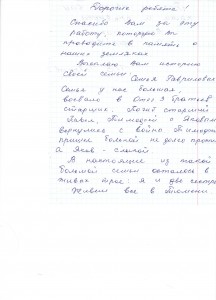 Дорогие ребята!
Спасибо Вам за эту
работу, которую вы
проводите в память о
наших земляках.
Высылаю Вам историю
своей семьи
Семья у нас большая,
воевало в Отеч 3 братьев
старших. Погиб старший
Павел, Тимофей и Яков
вернулись с войны. Тимофей
пришел больной не долго прожил
а Яков - слепой
В настоящие из такой
большой семьи осталось в
живых трое: я и две сестры
Живем все в Тюмени.